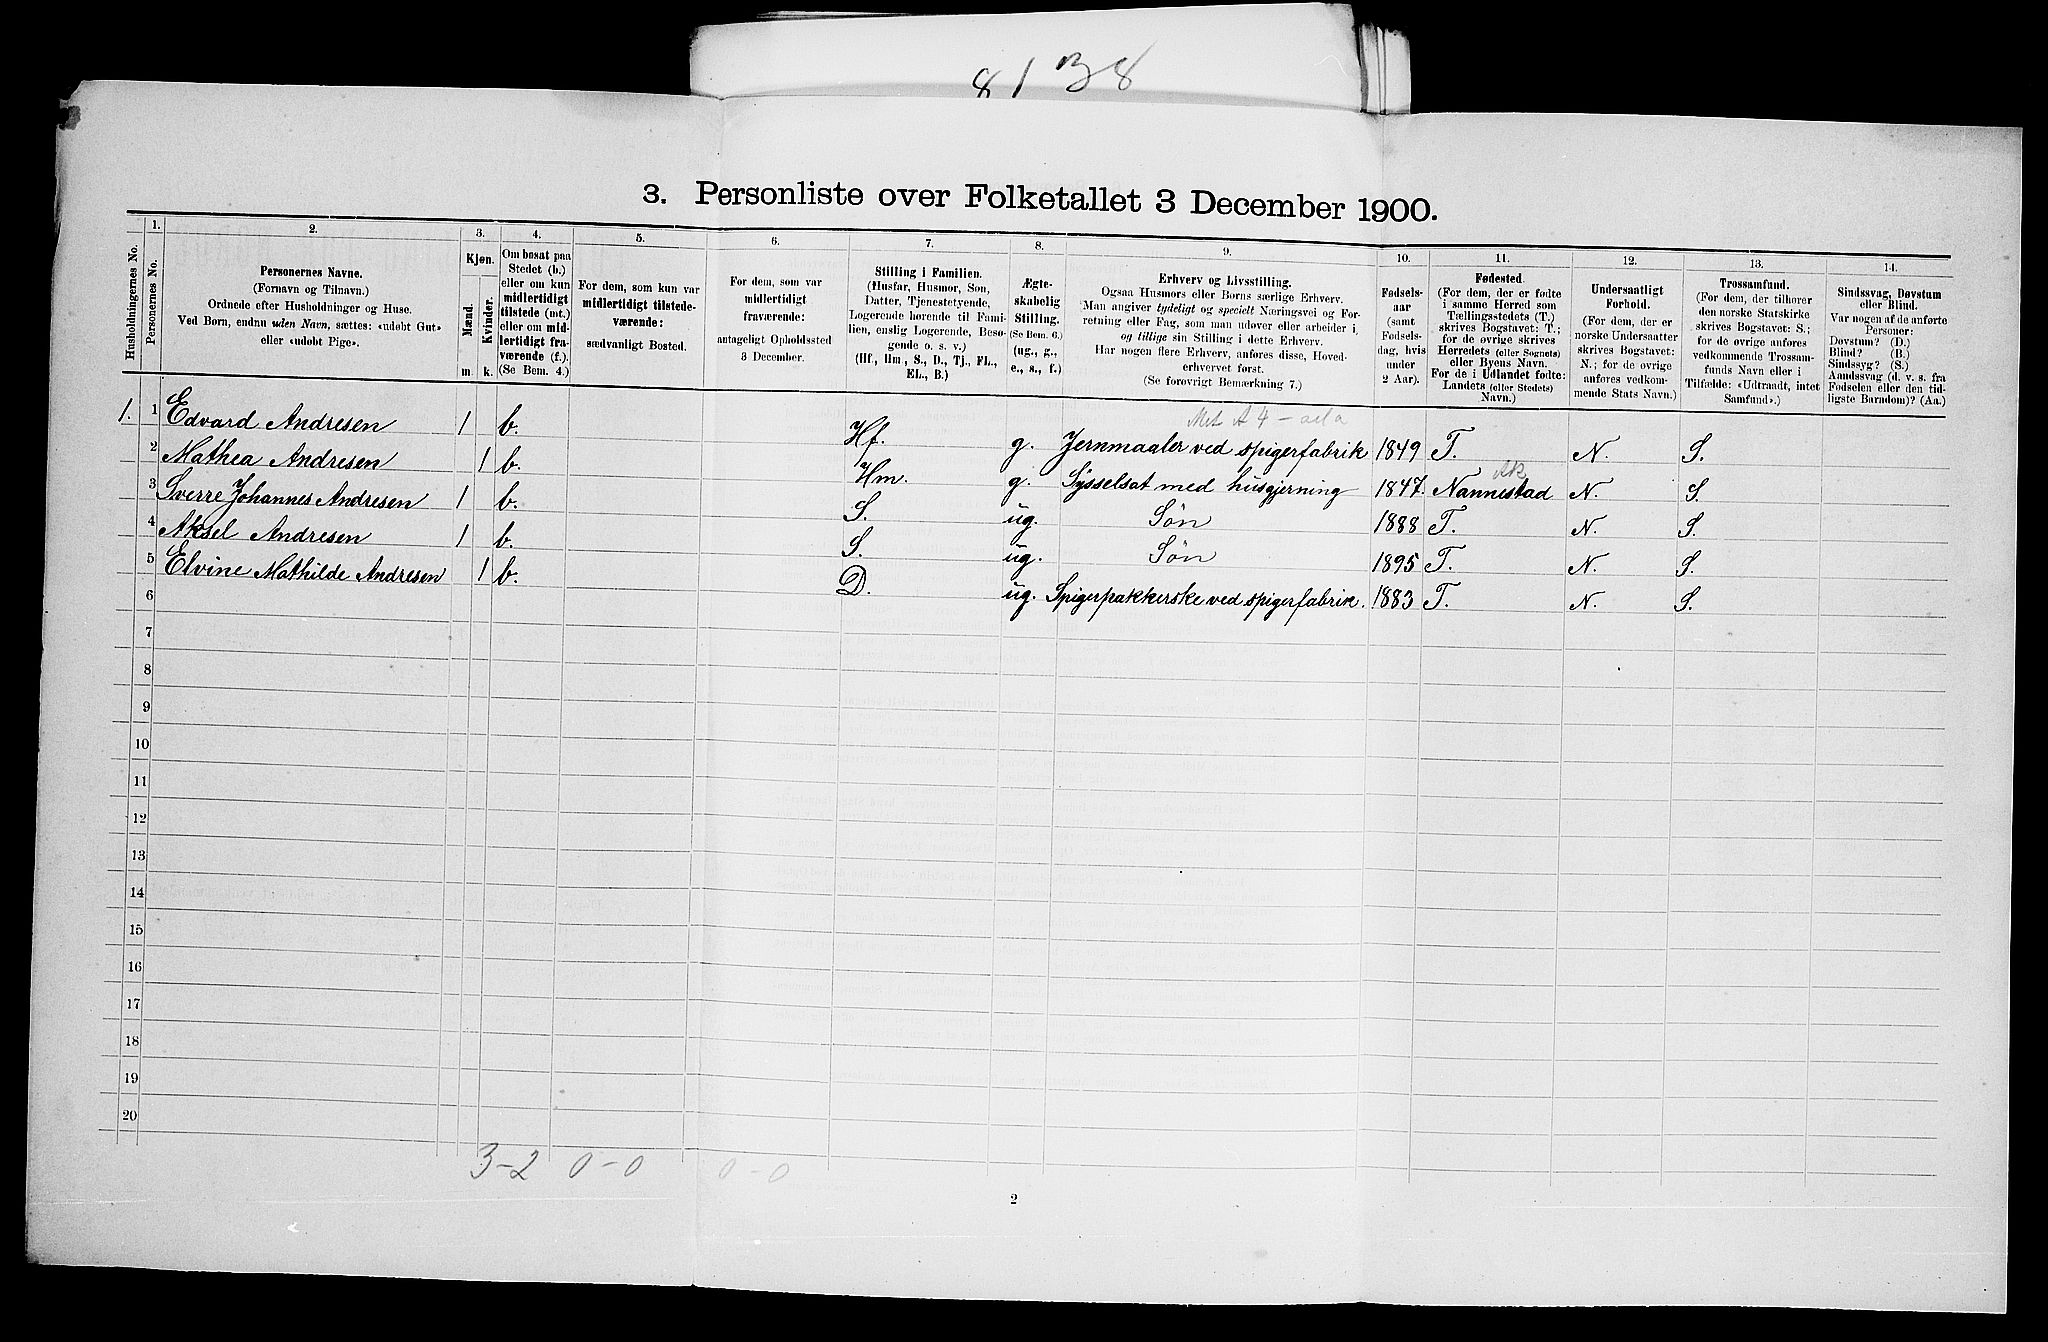 8138
3. Personliste over Folketallet 3 December 1900.
1. 2. 3. 4. 5. 6. 7. 8. 9. 10. 11. 12. 13. 14.
Husholdningernes No.
Personernes No.
Personernes Navne.
(Fornavn og Tilnavn.)
Ordnede efter Husholdninger og Huse.
Ved Børn, endnu uden Navn, sættes: «udøbt Gut»
eller «udøbt Pige».
Kjøn.
Mænd.
Kvinder.
m. k.
Om bosat paa
Stedet (b.)
eller om kun
midlertidigt
tilstede (mt.)
eller om mid-
lertidigt fra-
værende (f.).
(Se Bem. 4.)
For dem, som kun var
midlertidigt tilstede-
værende:
sædvanligt Bosted.
For dem, som var
midlertidigt
fraværende:
antageligt Opholdssted
3 December.
Stilling i Familien.
(Husfar, Husmor, Søn,
Datter, Tjenestetyende,
Logerende hørende til Fami-
lien, enslig Logerende, Besø-
gende o. s. v.)
(Hf., Hm., S., D., Tj., FL.,
EL., B.)
Ægte-
skabelig
Stilling.
(Se Bem. 6.)
(ug., g.,
e., s., f.)
Erhverv og Livsstilling.
Ogsaa Husmors eller Børns særlige Erhverv.
Man angiver tydeligt og specielt Næringsvei og For-
retning eller Fag, som man udøver eller arbeider i,
og tillige sin Stilling i dette Erhverv.
Har nogen flere Erhverv, anføres disse, Hoved-
erhvervet først.
(Se forøvrigt Bemærkning 7.)
Fødsels-
aar
(samt
Fødsels-
dag, hvis
under
2 Aar).
Fødested.
(For dem, der er fødte
i samme Herred som
Tællingsstedets (T.)
skrives Bogstavet: T.;
for de øvrige skrives
Herredets (eller Sognets)
eller Byens Navn.
For de i Udlandet fødte:
Landets (eller Stedets)
Navn.)
Undersaatligt
Forhold.
(For dem, der er
norske Undersaatter
skrives Bogstavet:
N.; for de øvrige
anføres vedkom-
mende Stats Navn.)
Trossamfund.
(For dem, der tilhører
den norske Statskirke
skrives Bogstavet: S.;
for de øvrige anføres
vedkommende Trossam-
funds Navn eller i
Tilfælde: «Udtraadt, intet
Samfund».)
Sindssvag, Døvstum
eller Blind.
Var nogen af de anførte
Personer:
Døvstum? (D.)
Blind? (B.)
Sindssyg? (S.)
Aandssvag (d. v. s. fra
Fødselen eller den tid-
ligste Barndom)? (Aa.)
Met A 4
1. 1 Edvard Andresen 1 b. Hf. g. Jernmaaler ved spigerfabrik 1849 T. N. S.
2 Mathea Andresen 1 b. Hm. g. Sysselsat med husgjerning 1847. Nannestad Ak N. S.
3 Sverre Johannes Andresen 1 b. S. ug. Søn 1888 T. N. S.
4 Aksel Andresen 1 b. S. ug. Søn 1895 T. N. S.
5 Elvine Mathilde Andresen 1 b. D. ug. Spigerpakkerske ved spigerfabrik. 1883 T. N. S.
6
7
8
9
10
11
12
13
14
15
16
17
18
19
20
3-2 0-0 0-0
2